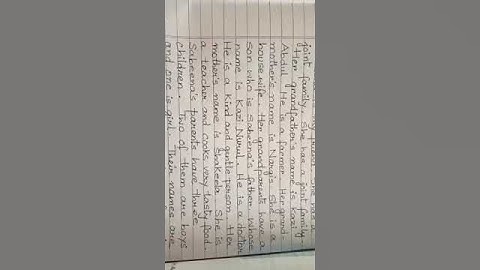 my friend. She has a
joint family. She has a joint family.
Her grandfather's name is Kazi
Abdul. He is farmer. Her grand-
mother's name is Nargis. She is a
house wife. Her grandparents have a
son who is Sabeena's father whose
name is Kazi Nurul. He is a doctor
He is a kind and gentle person. Her
mother's name is Shakeela. She is
a teacher and cooks very tasty food.
Sabeena's parents have three
children. Two of them are boys
and one is girl. Their names are